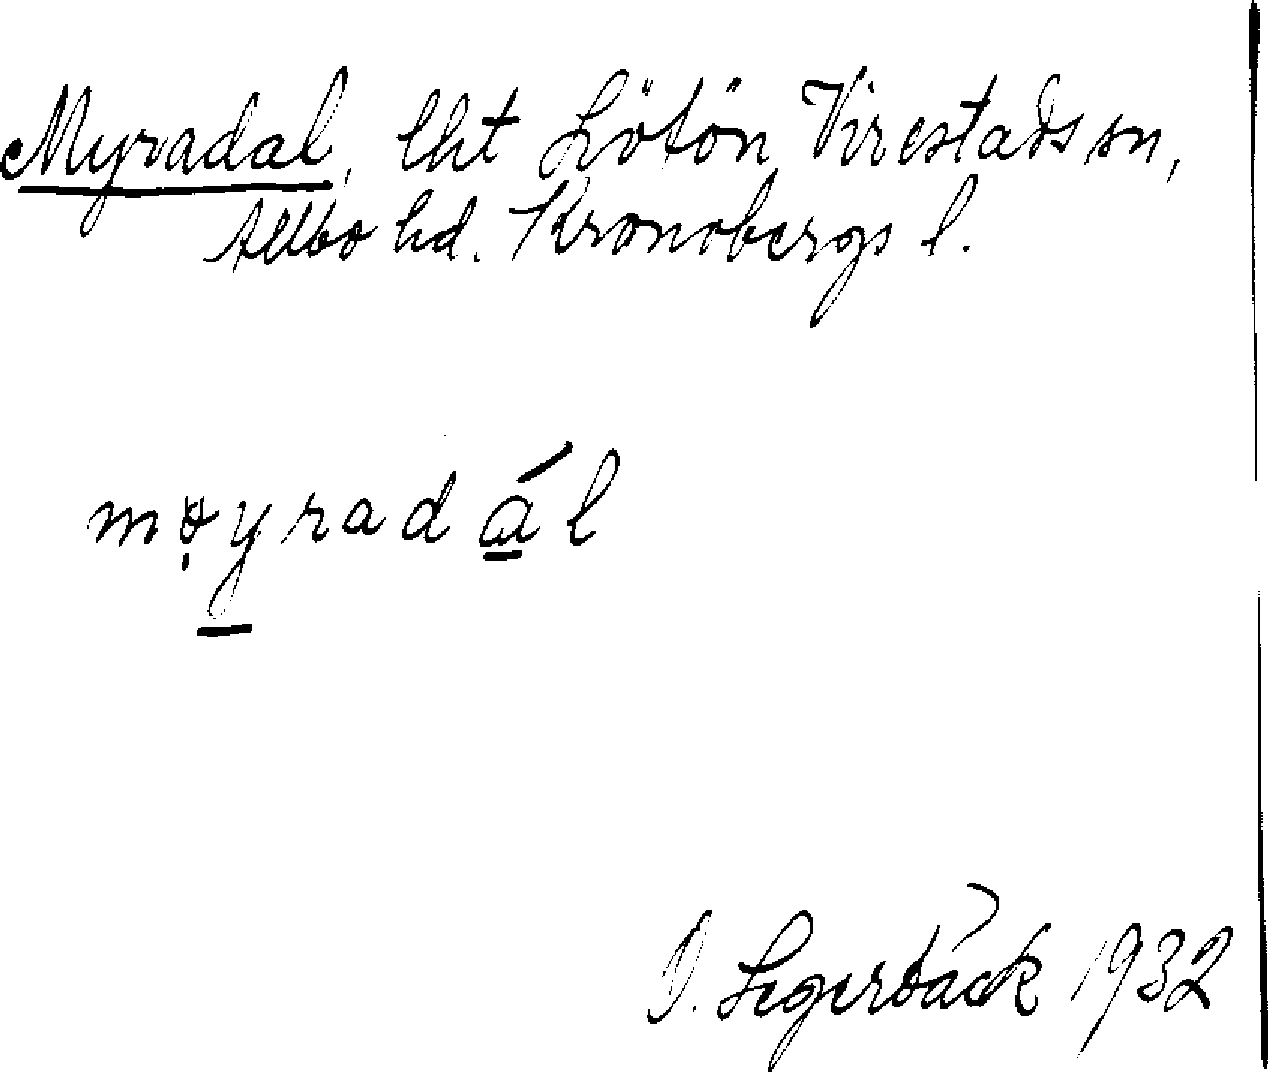 Myradal, lht Lötön Virestads sn,
Allbo hd. Kronobergs l.
mo̤yradál
1932